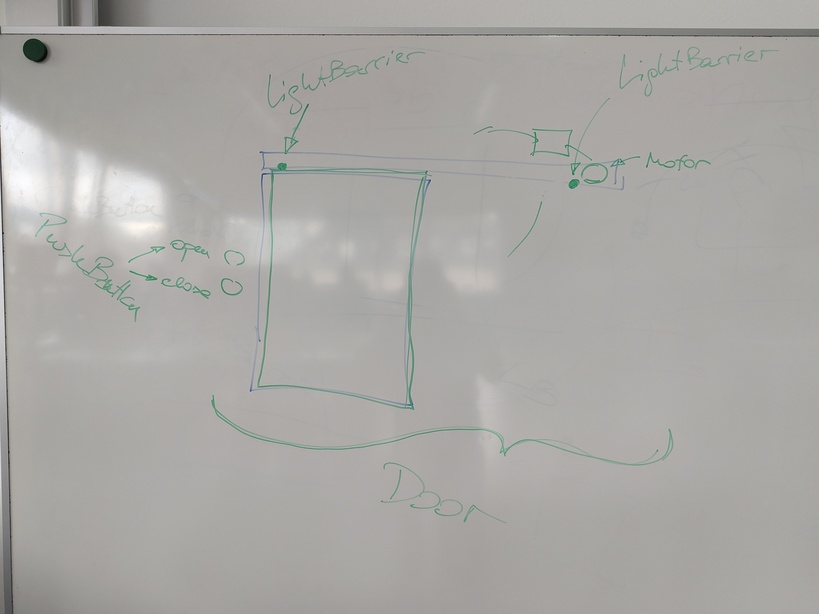 LightBarrier
LightBarrier
Motor
PushButton
open
close
Door